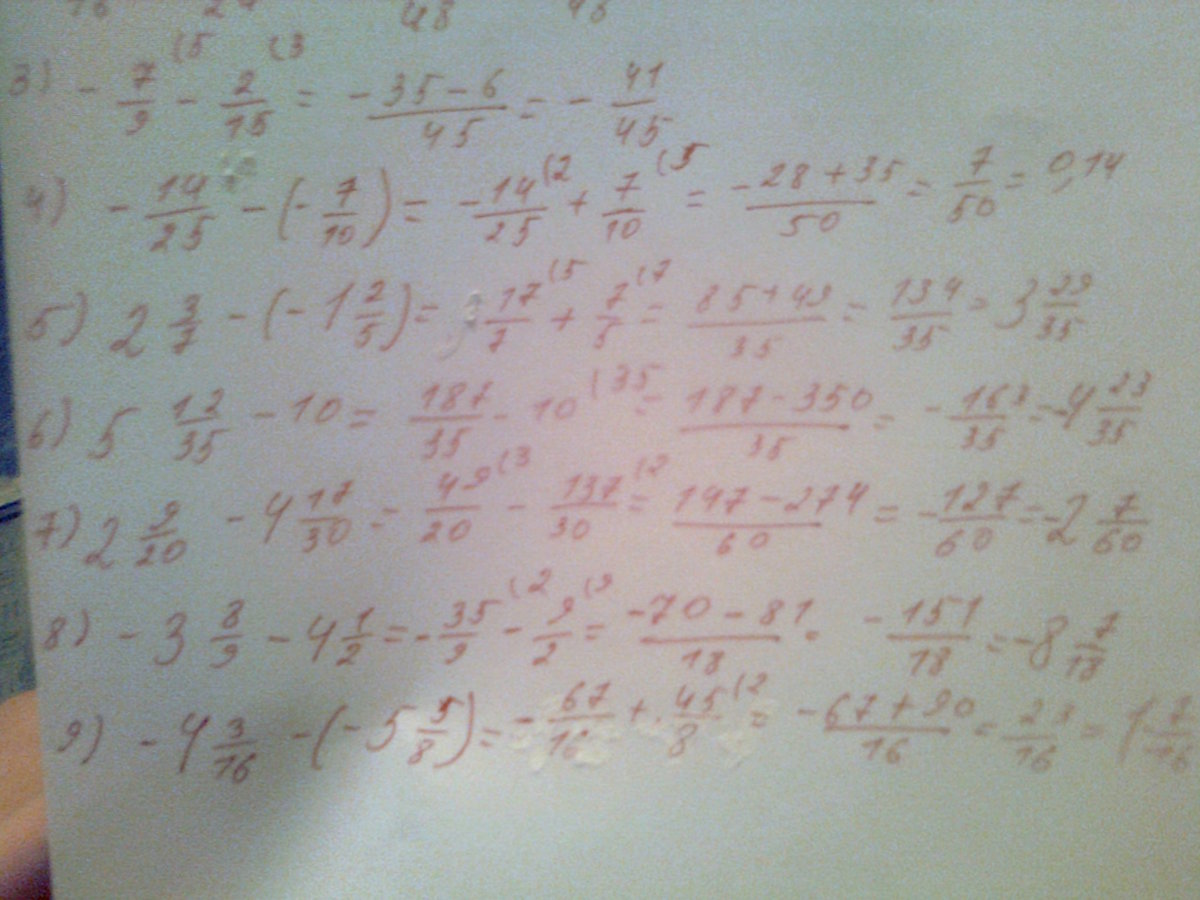 48
3) - 7/9 (5 - 2/15 (3 = - 35-6/45 = - 41/45
4) - 14/25 - (- 7/10) = - 14/25 (2 + 7/10 (5 = -28+35/50 = 7/50 = 0,14
5) 2 3/7 - (- 1 2/5) = 17/7 (5 + 7/5 (7 = 85+49/35 = 134/35 = 3 29/35
6) 5 12/35 - 10 = 187/35 - 10 (35 = 187-350/35 = - 163/35 = -4 23/35
7) 2 9/20 - 4 17/30 = 49/20 (3 - 137/30 (2 = 147-274/60 = - 127/60 = -2 7/60
8) - 3 8/9 - 4 1/2 = - 35/9 (2 - 9/2 (9 = -70-81/18 = - 151/18 = -8 7/18
9) - 4 3/16 - (- 5 5/8) = - 67/16 + 45/8 (2 = -67+90/16 = 23/16 = 1 7/16